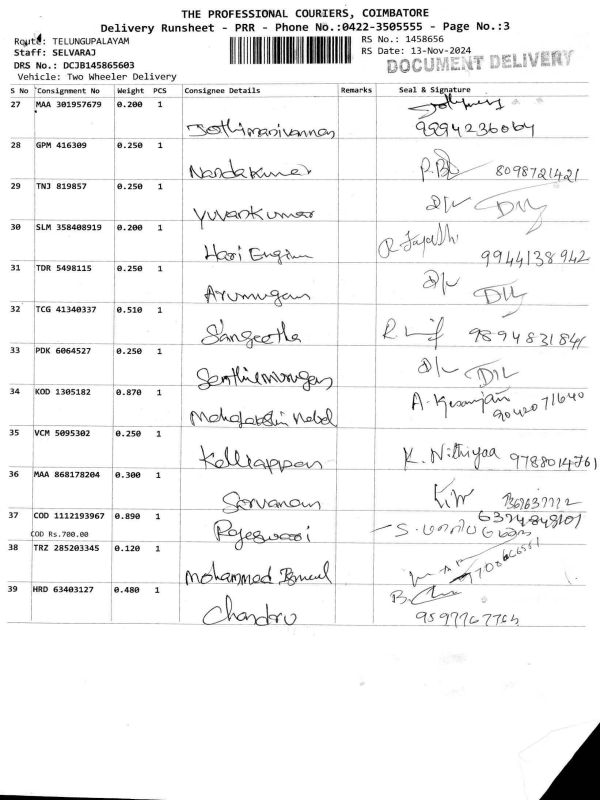 THE PROFESSIONAL COURIERS, COIMBATORE
Delivery Runsheet - PRR - Phone No.:0422-3505555 - Page No.:3
Route: TELUNGUPALAYAM
RS No.: 1458656
Staff: SELVARAJ
RS Date: 13-Nov-2024
DOCUMENT DELIVERY
DRS No.: DCJB145865603
Vehicle: Two Wheeler Delivery
S No Consignment No Weight PCS Consignee Details Remarks Seal & Signature
27 MAA 301957679 0.200 1
Jothimanivannan 9994236064
28 GPM 416309 0.250 1
Nandakumar 8098721421
29 TNJ 819857 0.250 1
Yuvankumar
30 SLM 358408919 0.200 1
Hari Engim 9944138942
31 TDR 5498115 0.250 1
Arumugam
32 TCG 41340337 0.510 1
Sangeetha 9894831841
33 PDK 6064527 0.250 1
Senthilmurugan
34 KOD 1305182 0.870 1
9042071640
35 VCM 5095302 0.250 1
Kaliappan K. Nithiyaa 9788014761
36 MAA 868178204 0.300 1
Saravanan
37 COD 1112193967 0.890 1
COD Rs.700.00
Rajeswari
38 TRZ 285203345 0.120 1
Mohammed Ismail
39 HRD 63403127 0.480 1
Chandru 9597767763